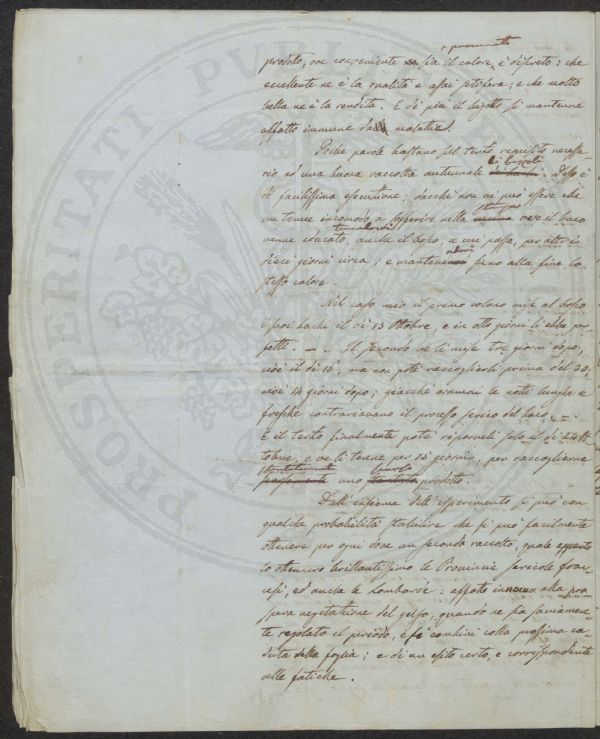 prodotto, ove conveniente sia il calore, è discreto: che
eccellente ne è la qualità e assai setifera; e che molto
bella ne è la rendita. E di più il bigatto si mantenne
affatto immune da malattia.
Poche parole bastano sul terzo requisito necessa-
rio ad una buona raccolta autunnale
di bozzoli
Esso è
di facilissima esecuzione; dacchè non vi può essere che
un tenue incomodo a sofferire nella
ove il baco
tenendovi
venne educato, anche il bosco, a cui passa, per altri
dieci giorni circa; e mantenervi fino alla fine lo
stesso calore.
Nel caso mio il primo colono mise al bosco
i suoi bachi il dì 13 Ottobre, e in otto giorni li ebbe per-
fetti. — Il secondo ve li mise tre giorni dopo,
cioè il dì 16, ma non potè raccoglierli prima del 30,
cioè 14 giorni dopo; giacchè oramai le notti lunghe e
fresche contrariavano il processo serico del baco. =
E il terzo finalmente potè riporveli solo il dì 24 Ot-
tobre, e ve li tenne per 15 giorni, per raccoglierne
uno
prodotto.
Dall'insieme dell'esperimento si può con
qualche probabilità stabilire che si può facilmente
ottenere per ogni dove un secondo raccolto, quale appunto
lo ottennero brillantissimo le Provincie sericole fran-
cesi, ed anche le Lombarde: affatto innocuo alla pro-
spera vegetazione del gelso, quando ne sia saviamen-
te regolato il periodo, e si combini colla prossima ca-
duta della foglia; e di un esito certo, e corrispondente
alle fatiche.
PROSPERITATI PUBLICAE